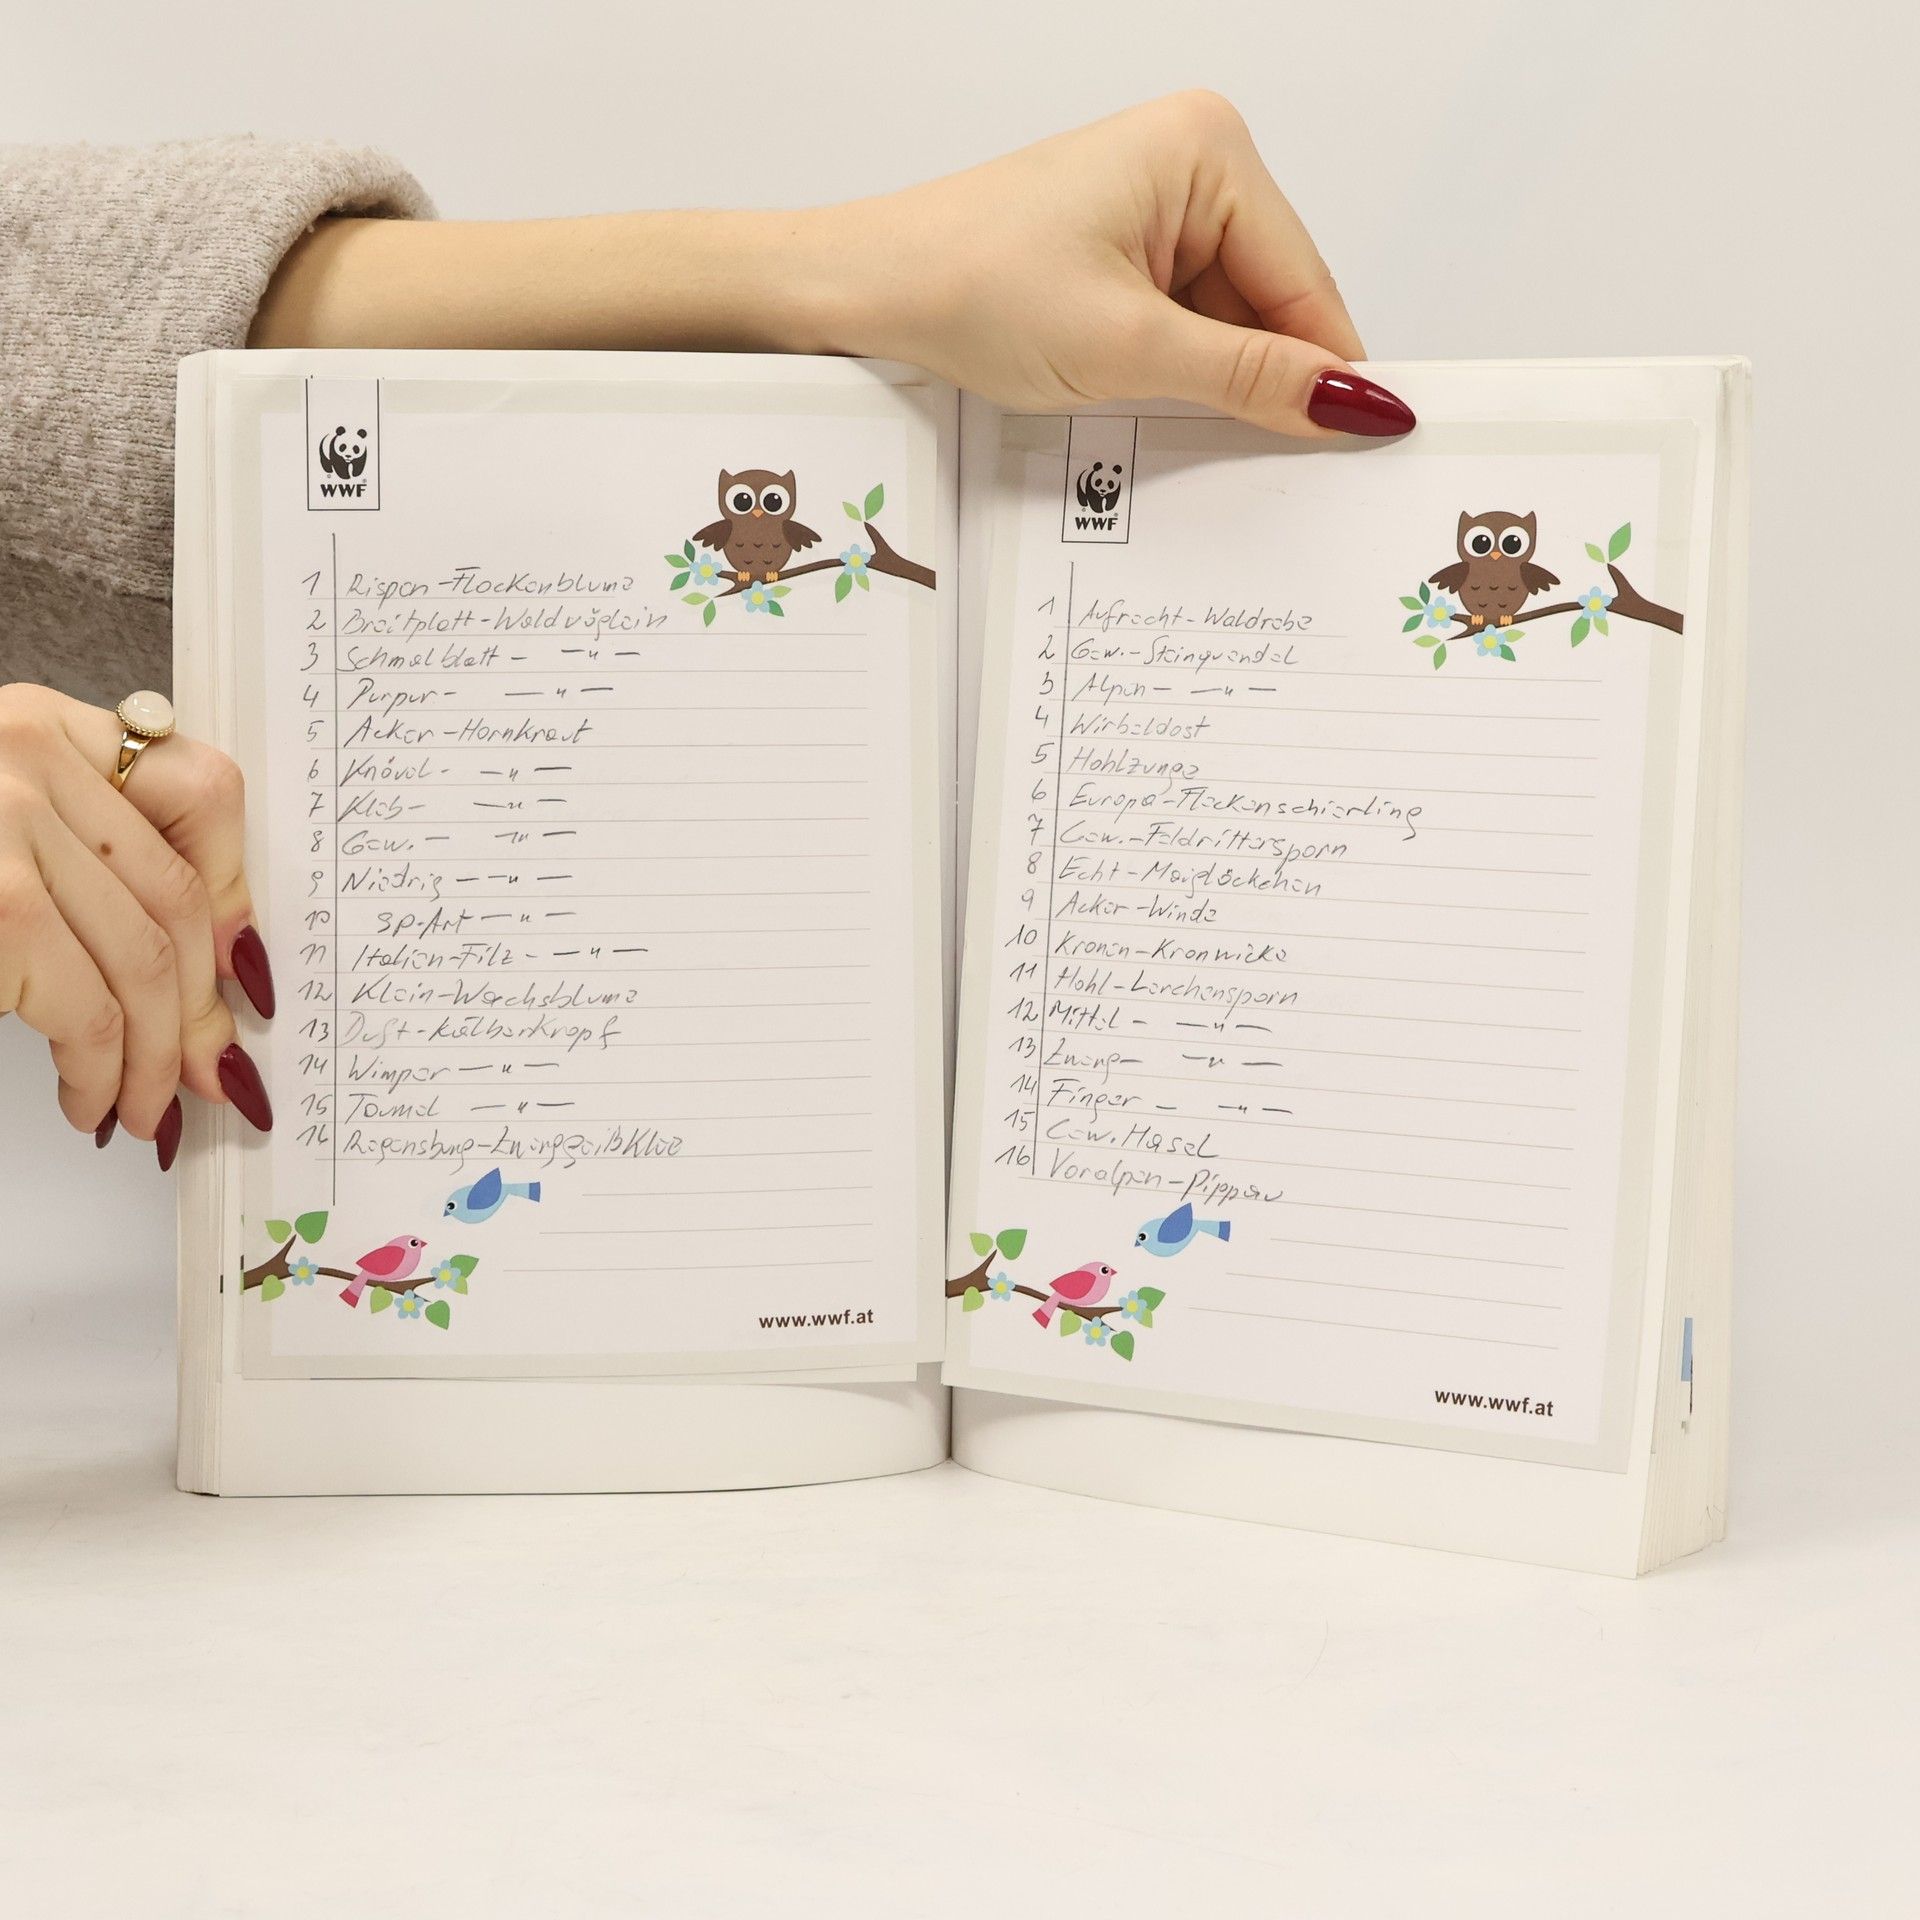 WWF
1 Rispen-Flockenblume
2 Breitblatt-Waldvöglein
3 Schmalblatt- —"—
4 Purpur- —"—
5 Acker-Hornkraut
6 Knäuel- —"—
7 Kleb- —"—
8 Gew.- —"—
9 Niedrig- —"—
10 sp-Art —"—
11 Italien-Filz- —"—
12 Klein-Wachsblume
13 Duft-Kälberkropf
14 Wimper —"—
15 Taumel —"—
16 Regensburg-Zwerggeißklee
www.wwf.at
WWF
1 Aufrecht-Waldrebe
2 Gew.-Steinquendel
3 Alpen- —"—
4 Wirbeldost
5 Hohlzunge
6 Europa-Fleckenschierling
7 Gew.-Feldrittersporn
8 Echt-Maiglöckchen
9 Acker-Winde
10 Kronen-Kronwicke
11 Hohl-Lerchensporn
12 Mittel- —"—
13 Zwerg- —"—
14 Finger- —"—
15 Gew. Hasel
16 Voralpen-Pippau
www.wwf.at